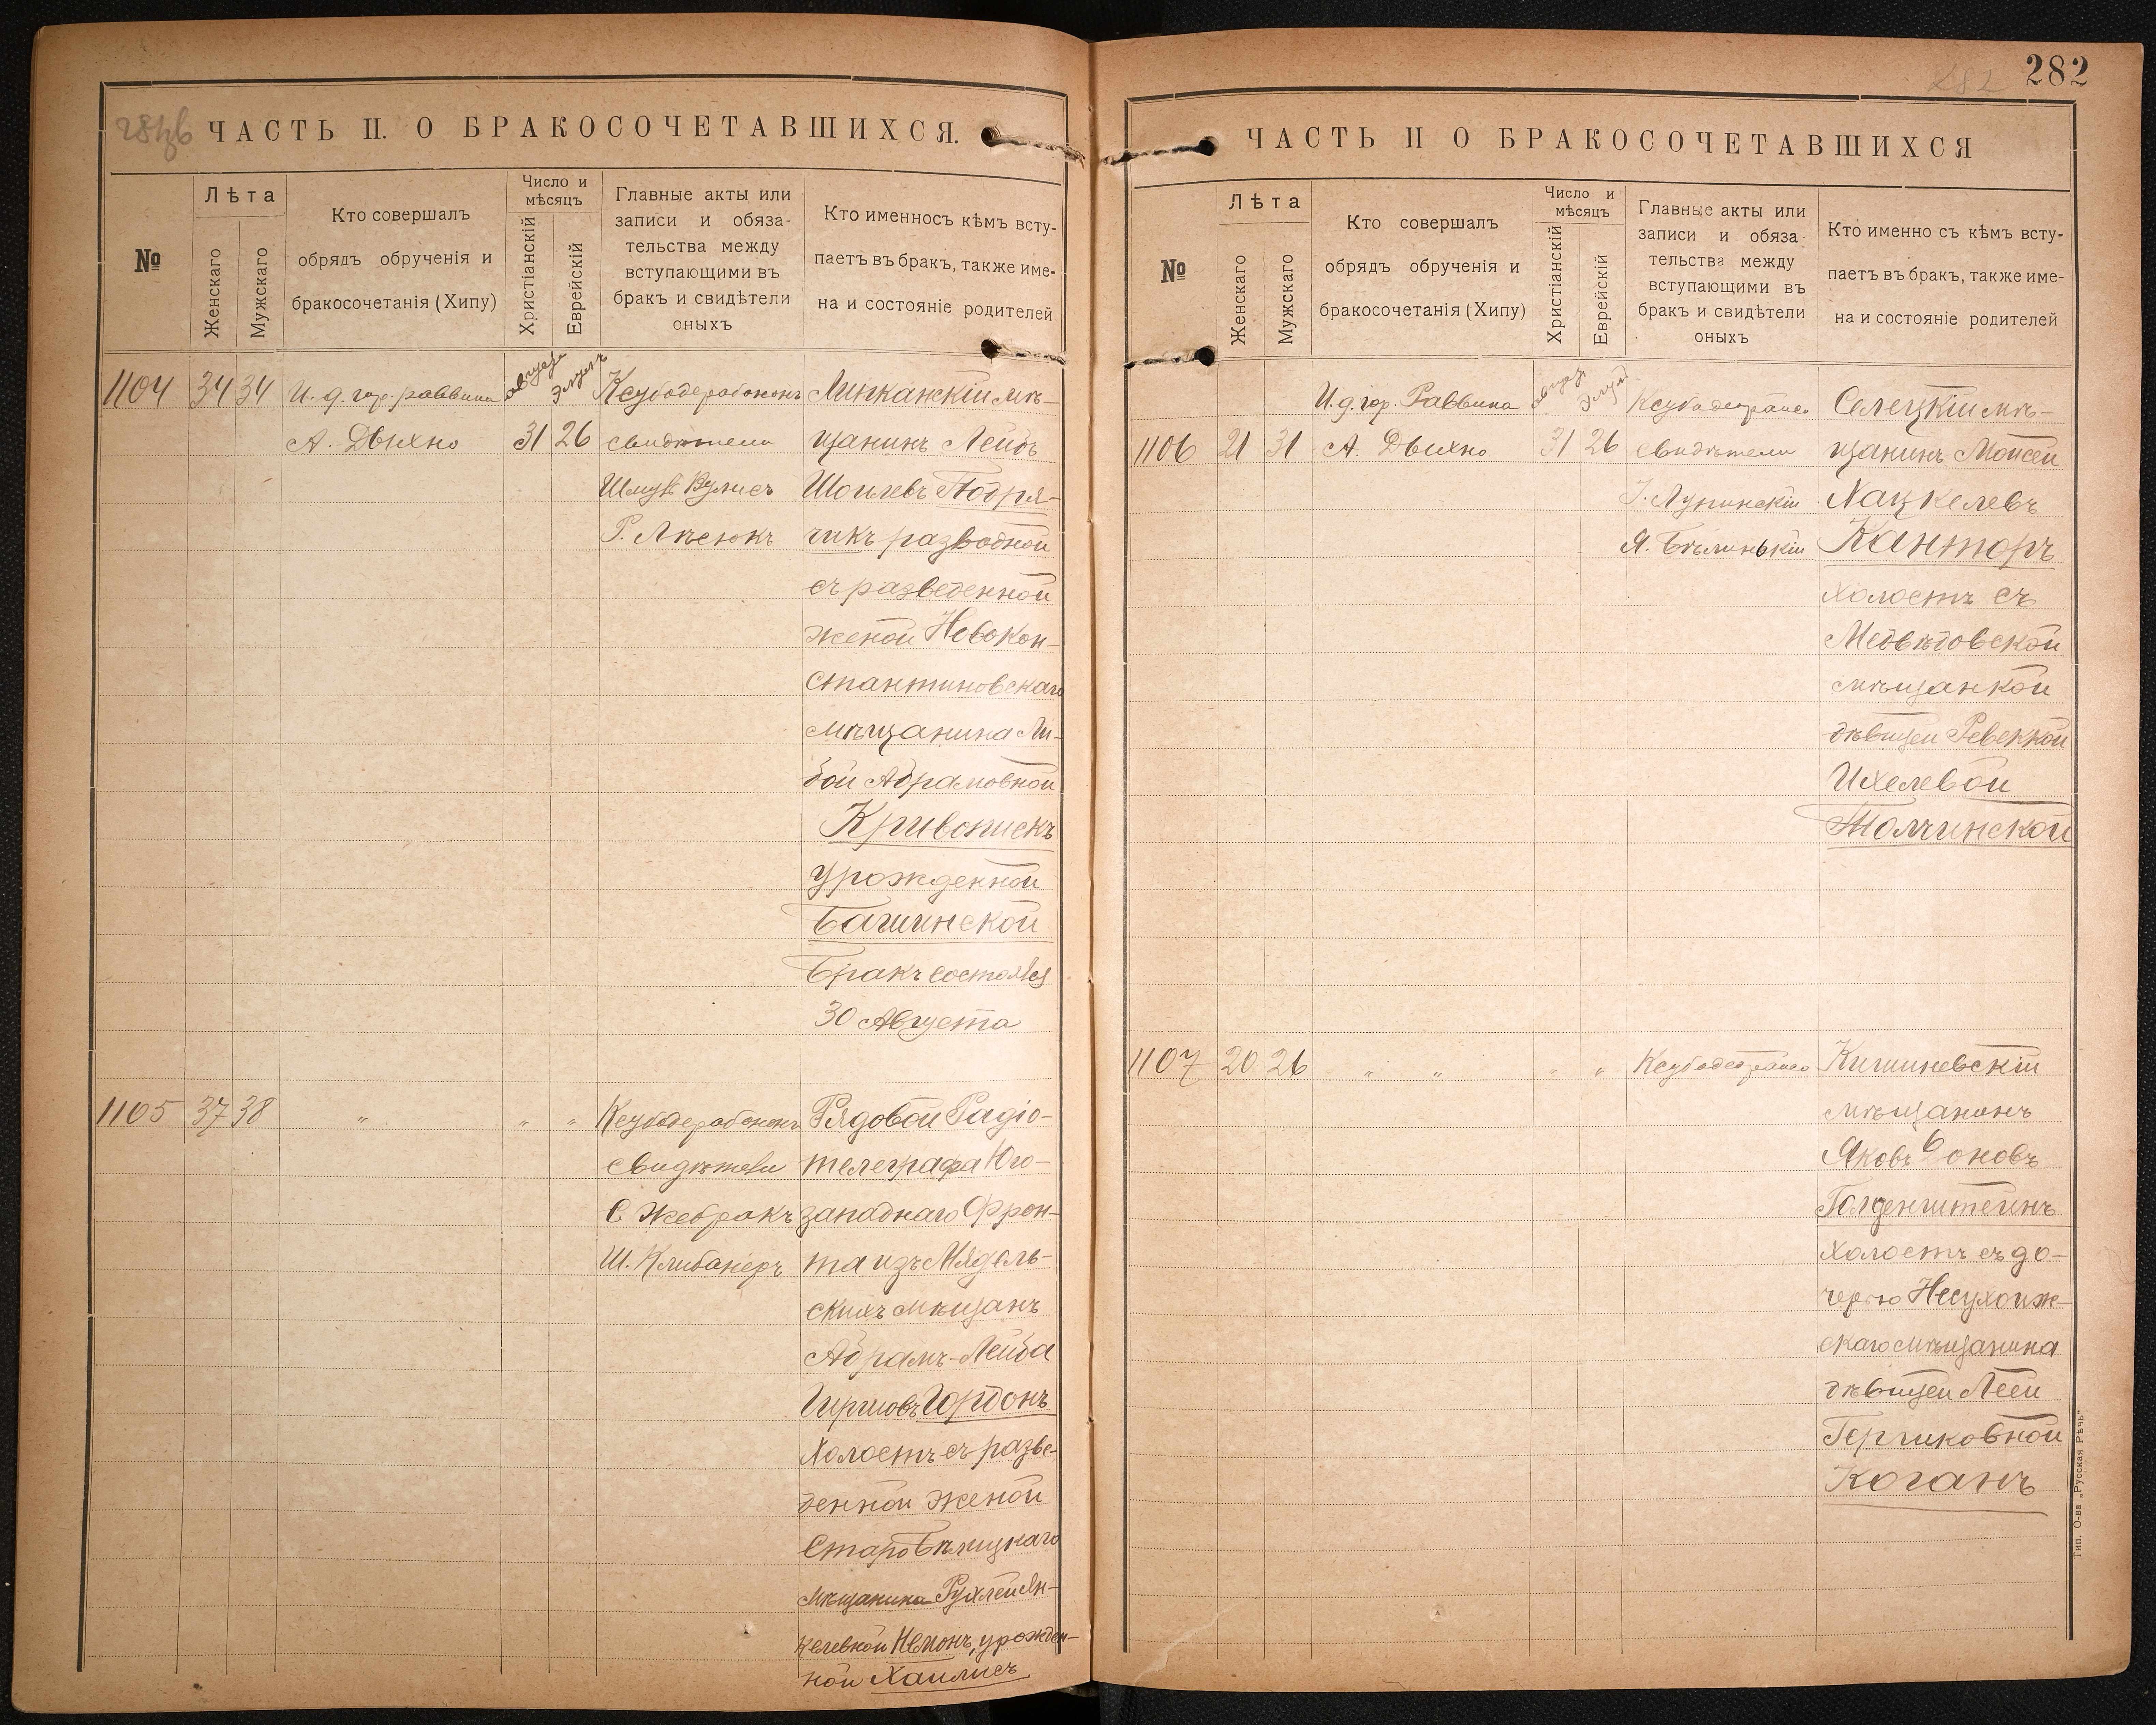 282
282
28½в
ЧАСТЬ II. О БРАКОСОЧЕТАВШИХСЯ.
№
Лѣта
Женскаго
Мужскаго
Кто совершалъ
обрядъ обрученія и
бракосочетанія (Хипу)
Число и
мѣсяцъ
Христіанскій
Еврейскій
Главные акты или
записи и обяза-
тельства между
вступающими въ
бракъ и свидѣтели
оныхъ
Кто именносъ кѣмъ всту-
паетъ въ бракъ, также име-
на и состояніе родителей
1104 34 34 И. д. гор. раввина
А. Дыхно
31 26
свидѣтели
Шмуль Вулис
Р. Лѣсюкъ
Липканскій мѣ-
щанинъ Лейбъ
Шоилевъ Подря-
чикъ разводной
съ разведенной
женой Новокон-
стантиновскаго
мѣщанина Ли-
бой Абрамовной
Кривонискъ
урожденной
Багинской
Бракъ состоялся
30 Августа
1105 37 38 " " "
свидѣтели
С Жебракъ
Ш. Клибанеръ
Рядовой Радіо-
телеграфа Юго-
западнаго Фрон-
та изъ Мядель-
скихъ мѣщанъ
Абрамъ-Лейба
Гиршовъ Гордонъ
Холостъ съ разве-
денной женой
Старобѣлицкаго
мѣщанина Рухлей Ян-
келевной Немонъ, урожден-
ной Хаимисъ
ЧАСТЬ II О БРАКОСОЧЕТАВШИХСЯ
№
Лѣта
Женскаго
Мужскаго
Кто совершалъ
обрядъ обрученія и
бракосочетанія (Хипу)
Число и
мѣсяцъ
Христіанскій
Еврейскій
Главные акты или
записи и обяза-
тельства между
вступающими въ
бракъ и свидѣтели
оныхъ
Кто именно съ кѣмъ всту-
паетъ въ бракъ, также име-
на и состояніе родителей
И. д. гор. Раввина
1106 21 31 А. Дыхно
31 26
свидѣтели
І. Лупинскій
Я. Бѣлинькій
Селецкій мѣ-
щанинъ Мойсей
Хацкелевъ
Канторъ
Холостъ съ
Медвѣдовской
мѣщанкой
дѣвицей Ревеккой
Ихелевой
Толчинской
1107 20 26 " " " "
Кишиневскій
мѣщанинъ
Яковъ Соновъ
Голденштейнъ
Холостъ съ до-
черью Несухоиж-
скаго мѣщанина
дѣвицей Леей
Гершковной
Коганъ
Тип. О-ва „Русская Рѣчь"